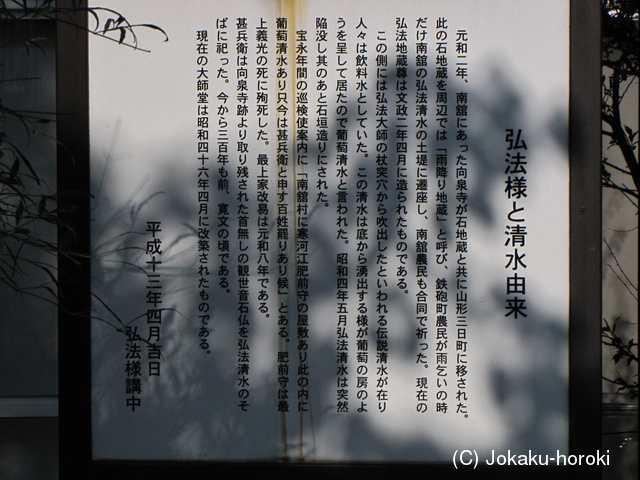 弘法様と清水由来
元和二年、南舘にあった向泉寺が石地蔵と共に山形三日町に移された。
此の石地蔵を周辺では「雨降り地蔵」と呼び、鉄砲町農民が雨乞いの時
だけ南舘の弘法清水の土堤に遷座し、南舘農民も合同で祈った。現在の
弘法地蔵尊は文政二年四月に造られたものである。
この側には弘法大師の杖突穴から吹出したといわれる伝説清水が在り
人々は飲料水としていた。この清水は底から湧出する様が葡萄の房のよ
うを呈して居たので葡萄清水と言われた。昭和四年五月弘法清水は突然
陥没し其のあと石垣造りにされた。
宝永年間の巡検使案内に「南舘村に寒河江肥前守の屋敷あり此の内に
葡萄清水あり只今は甚兵衛と申す百姓罷りあり候」とある。肥前守は最
上義光の死に殉死した。最上家改易は元和八年である。
甚兵衛は向泉寺跡より取り残された首無しの観世音石仏を弘法清水のそ
ばに祀った。今から三百年も前、寛文の頃である。
現在の大師堂は昭和四十六年四月に改築されたものである。
平成十三年四月吉日
弘法様講中
(C) Jokaku-horoki